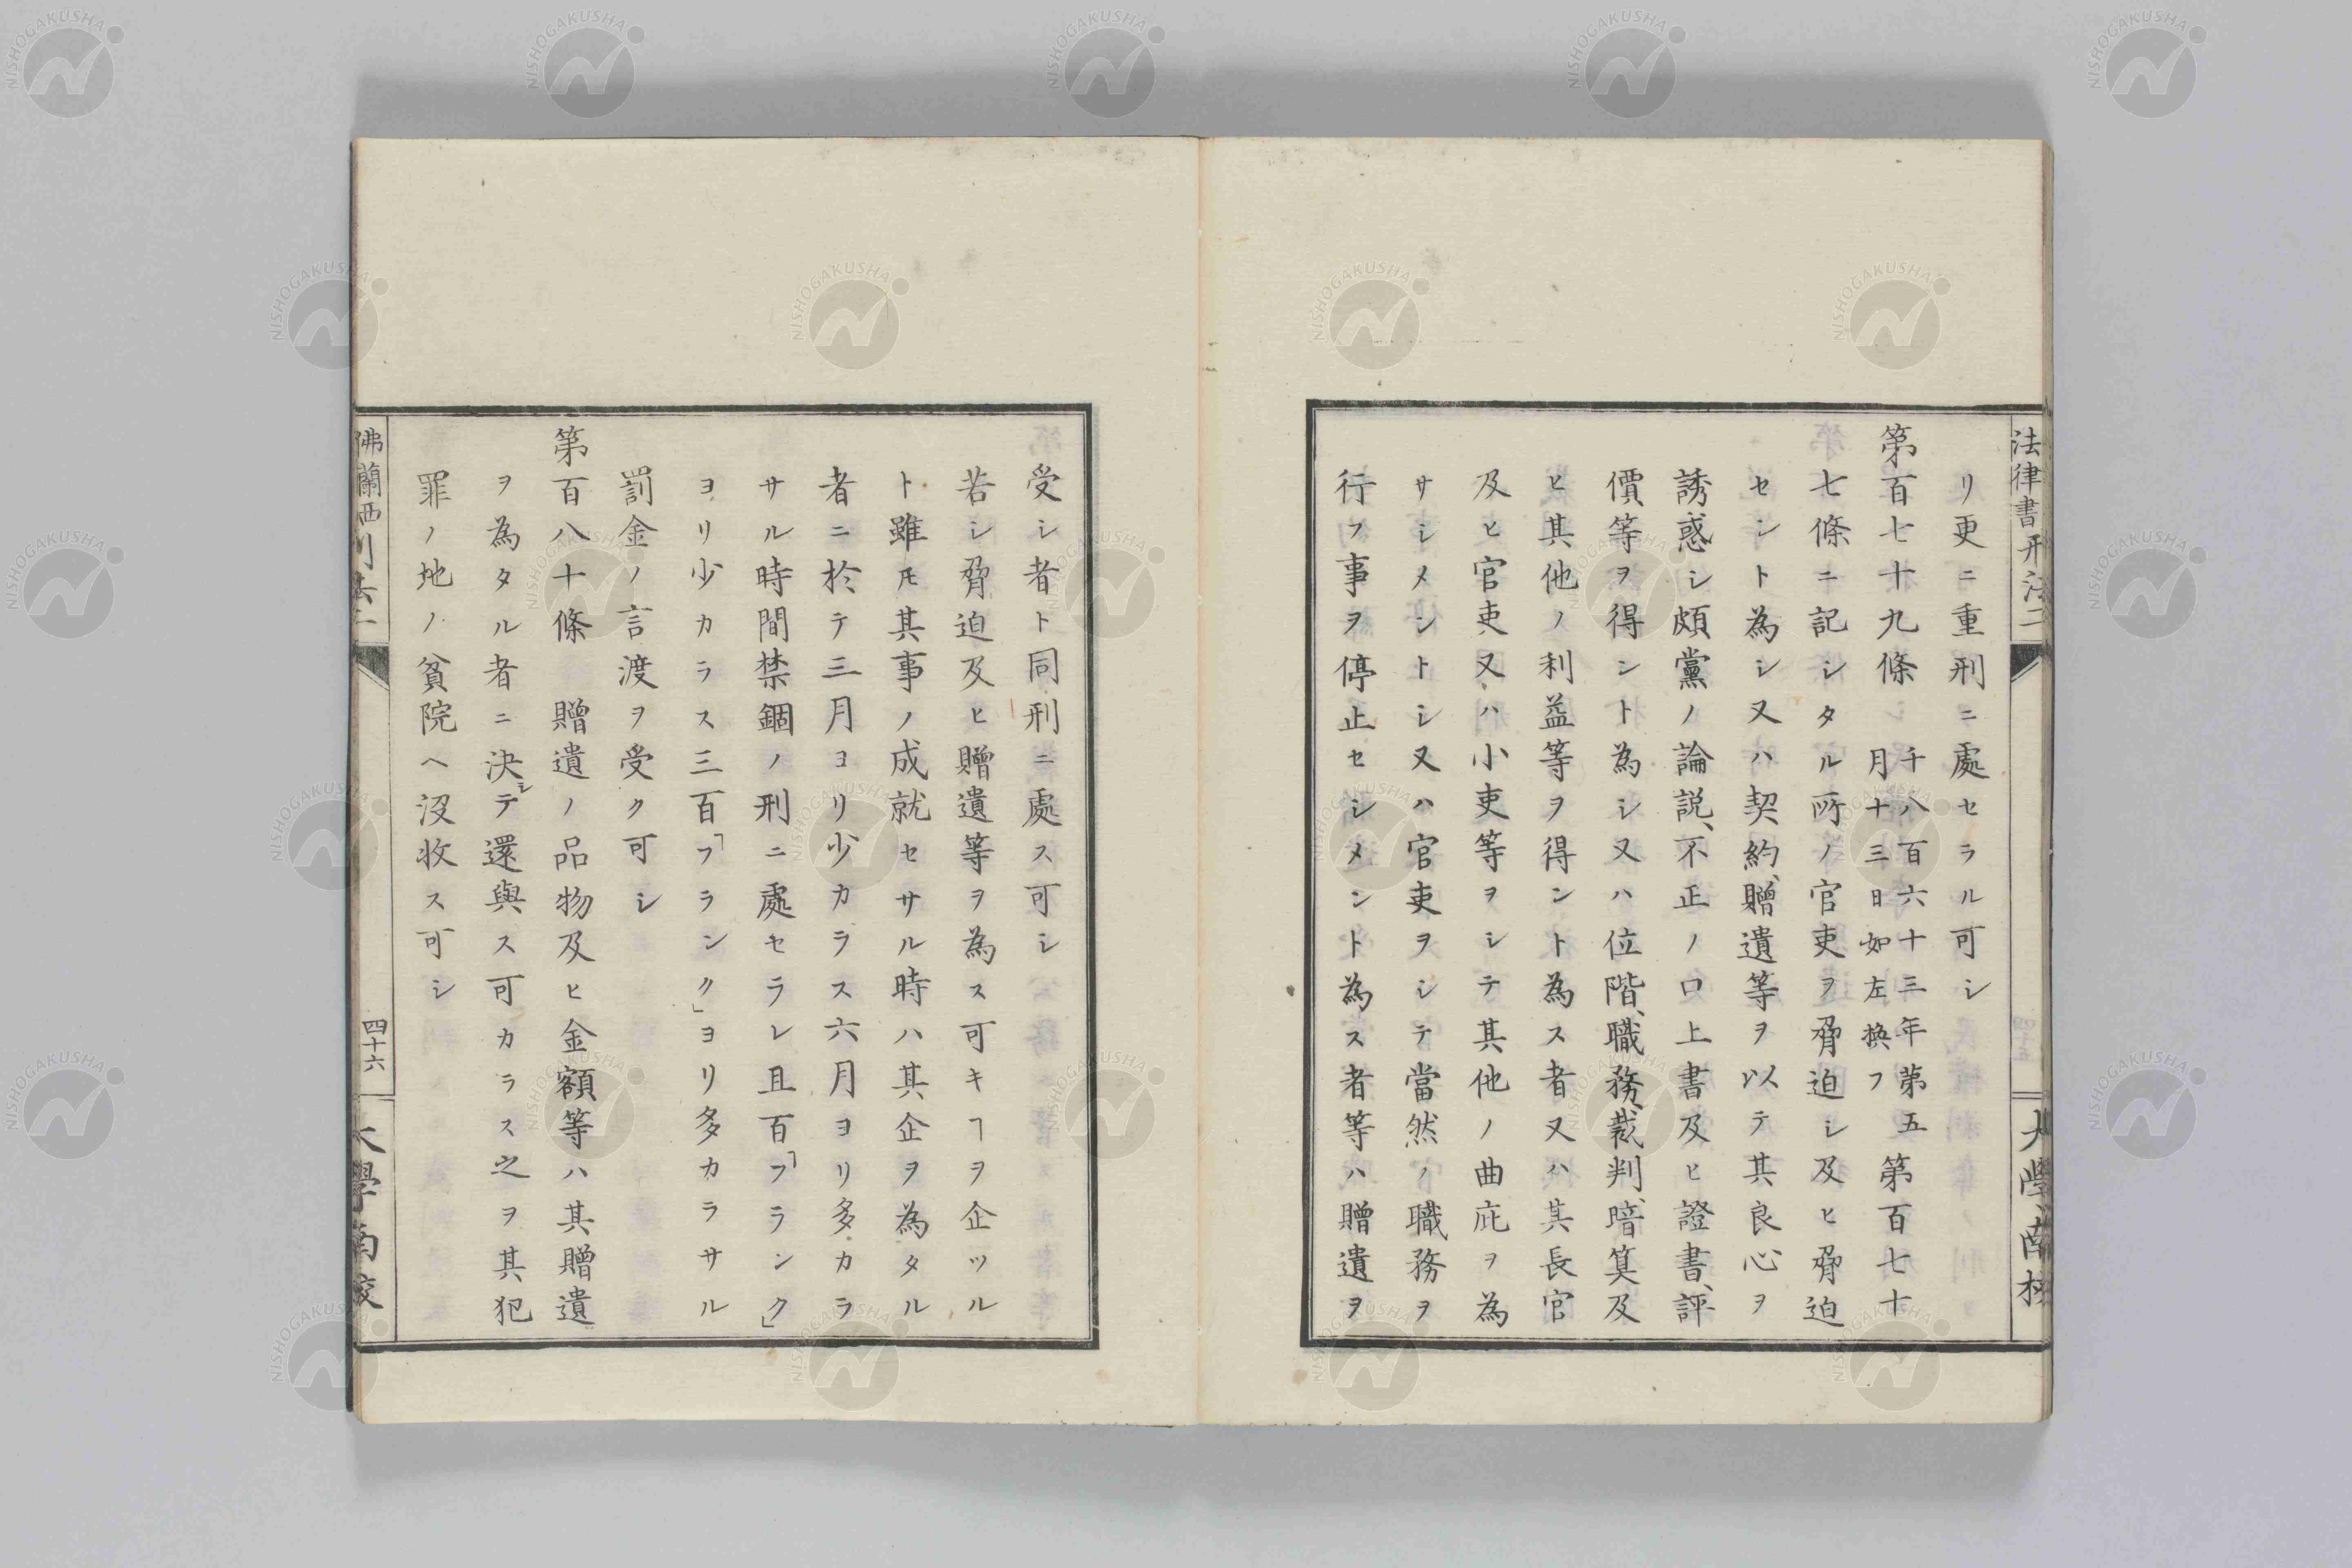 法律書刑法二
大學南校
リ更ニ重刑ニ處セラル可シ
第百七十九條 千八百六十三年第五月十三日如左換フ 第百七十
七條ニ記シタル所ノ官吏ヲ脅迫シ及ヒ脅迫
セント為シ又ハ契約、贈遺等ヲ以テ其良心ヲ
誘惑シ頗黨ノ論説、不正ノ口上書及ヒ證書、評
價等ヲ得ント為シ又ハ位階、職務、裁判、暗算及
ヒ其他ノ利益等ヲ得ント為ス者又ハ其長官
及ヒ官吏、又ハ小吏等ヲシテ其他ノ曲庇ヲ為
サシメントシ又ハ官吏ヲシテ當然ノ職務ヲ
行フ事ヲ停止セシメント為ス者等ハ贈遺ヲ
受シ者ト同刑ニ處ス可シ
若シ脅迫及ヒ贈遺等ヲ為ス可キヿヲ企ツル
ト雖𪜈其事ノ成就セサル時ハ其企ヲ為タル
者ニ於テ三月ヨリ少カラス六月ヨリ多カラ
サル時間禁錮ノ刑ニ處セラレ且百「フランク」
ヨリ少カラス三百「フランク」ヨリ多カラサル
罰金ノ言渡ヲ受ク可シ
第百八十條 贈遺ノ品物及ヒ金額等ハ其贈遺
ヲ為タル者ニ決シテ還與ス可カラス之ヲ其犯
罪ノ地ノ貧院ヘ沒收ス可シ
佛蘭西刑法二
四十六
大學南校
NISHOGAKUSHA